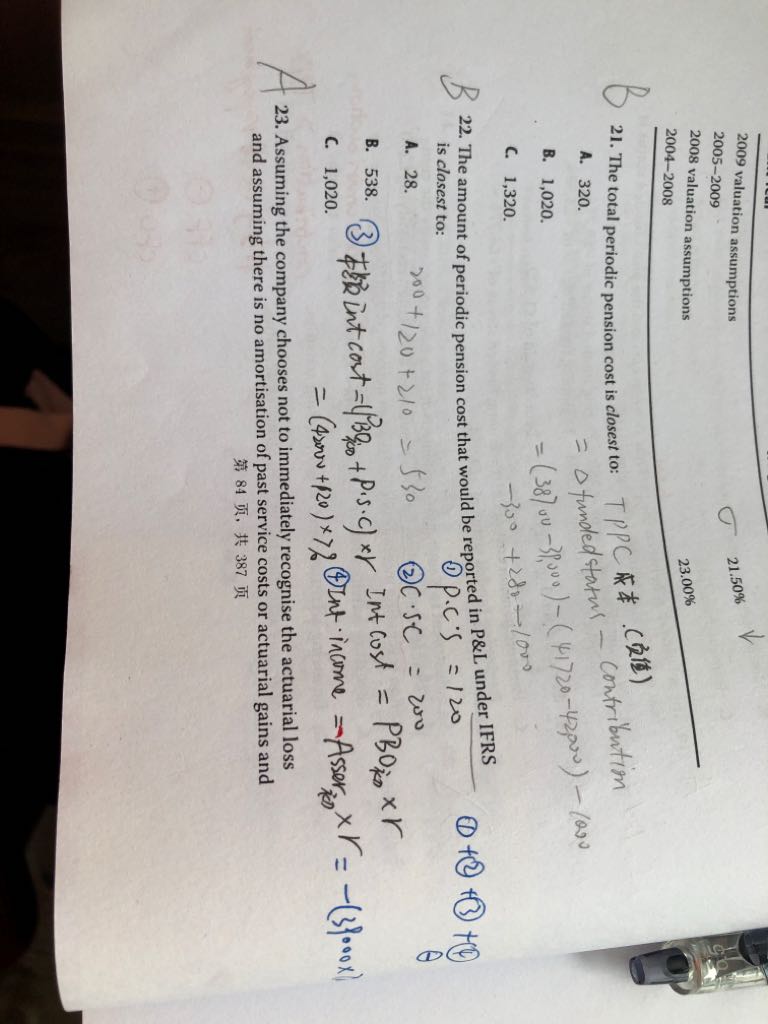 2009 valuation assumptions
2005–2009
21.50%
2008 valuation assumptions
2004–2008
23.00%
B 21. The total periodic pension cost is closest to: TPPC 成本 (负值)
A. 320. = Δ funded status - contribution
B. 1,020. = (38700-39,000) - (41720-42,000) - 1000
C. 1,320. -300 + 280 - 1000
B 22. The amount of periodic pension cost that would be reported in P&L under IFRS
is closest to: ① P.C'S = 120 ① + ② + ③ + ④
A. 28. 200 + 120 + 210 = 530 ② C.SC = 200
B. 538. Int Cost = PBO初 x r
③ Int cost = (PBO初 + P.S.C) x r
C. 1,020. = (42000 + 120) x 7% ④ Int. income = Asset初 x r = -(39000x
A 23. Assuming the company chooses not to immediately recognise the actuarial loss
and assuming there is no amortisation of past service costs or actuarial gains and
第 84 页, 共 387 页